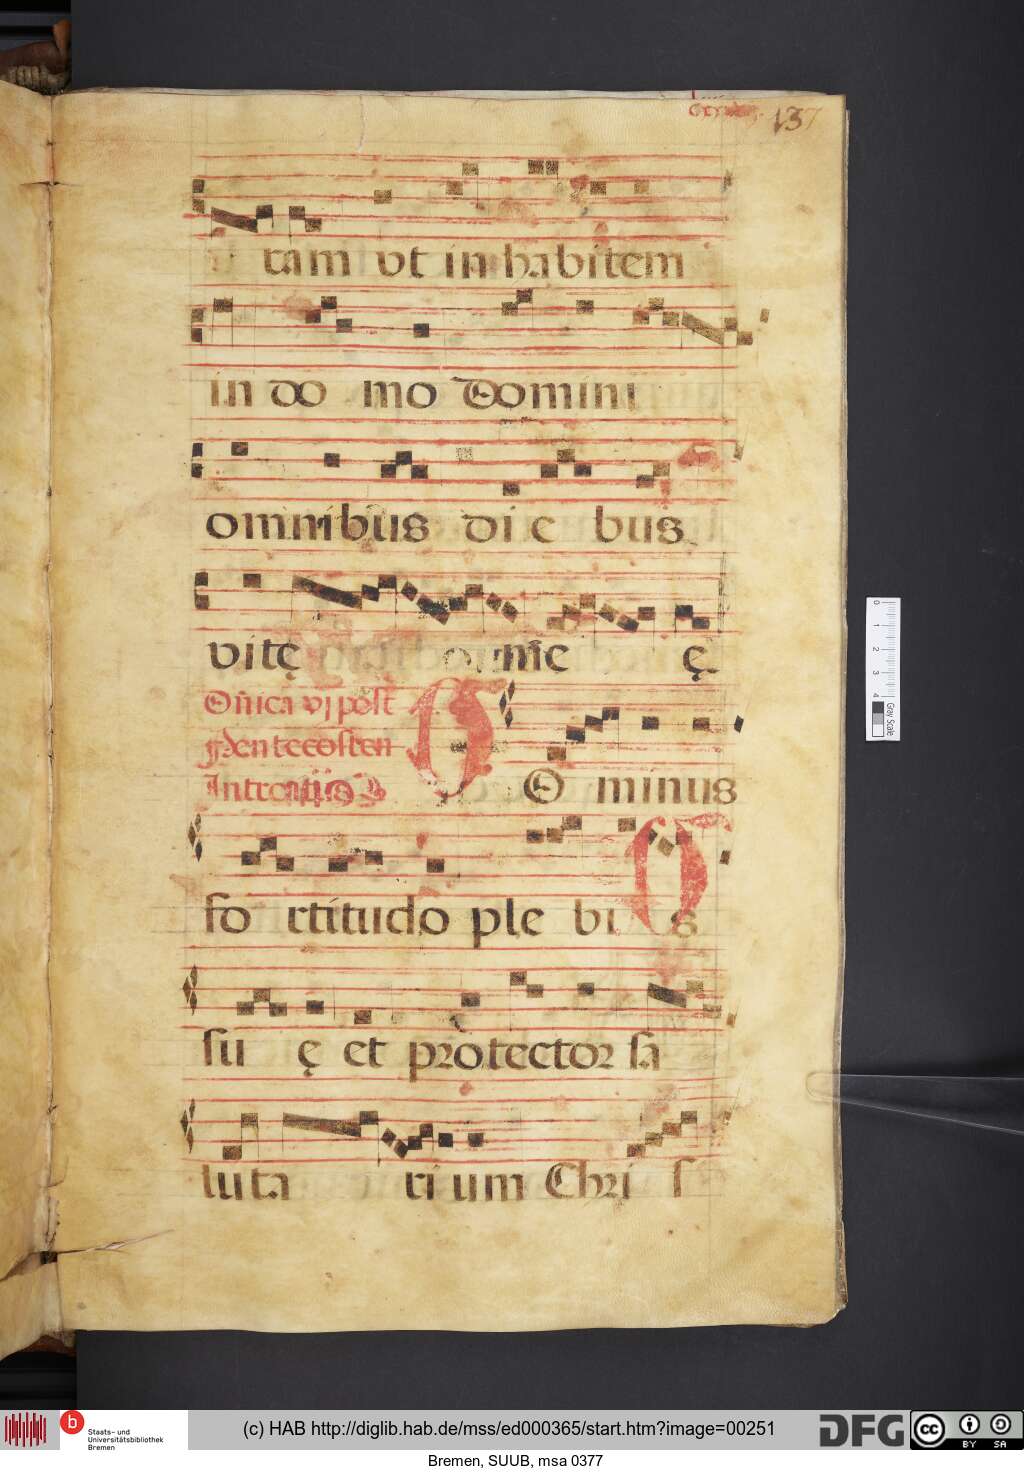 137
tam vt in habitem
in do mo Domini
omnibus di e bus
vitę męe ę.
Onica vj post
pentecosten
Introitus
D O minus
fo rtitudo ple bi s
su ę et protector sa
luta ri um Chri s
0 1 2 3 4
Gray Scale
b
Staats- und
Universitätsbibliothek
Bremen
(c) HAB http://diglib.hab.de/mss/ed000365/start.htm?image=00251
DFG
cc BY SA
Bremen, SUUB, msa 0377